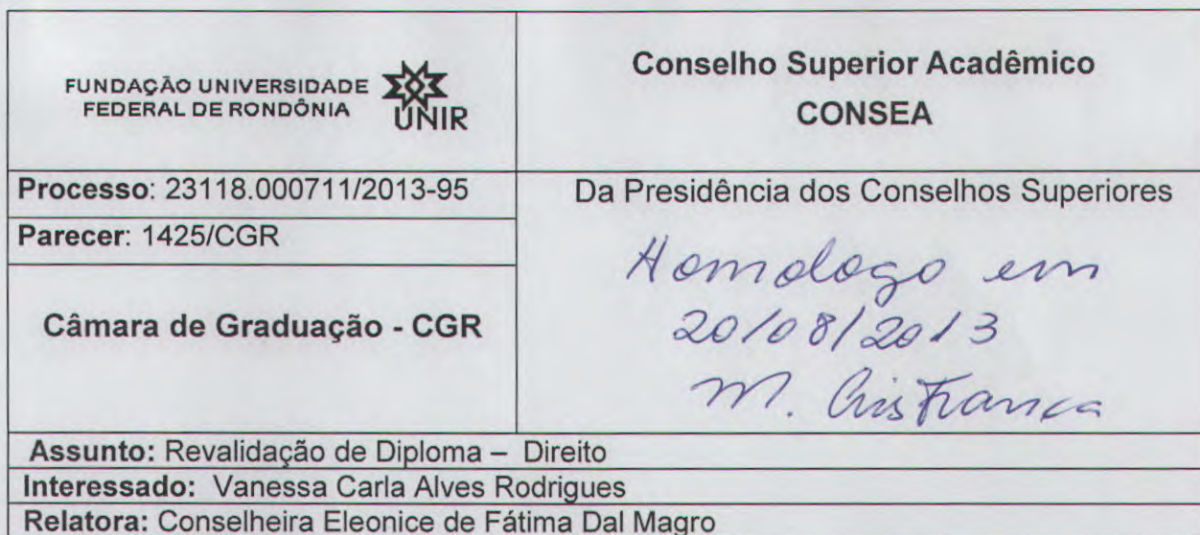 FUNDAÇÃO UNIVERSIDADE
FEDERAL DE RONDÔNIA
UNIR
Conselho Superior Acadêmico
CONSEA
Processo: 23118.000711/2013-95
Parecer: 1425/CGR
Câmara de Graduação - CGR
Da Presidência dos Conselhos Superiores
Homologo em
20/08/2013
M. Cris Franca
Assunto: Revalidação de Diploma – Direito
Interessado: Vanessa Carla Alves Rodrigues
Relatora: Conselheira Eleonice de Fátima Dal Magro